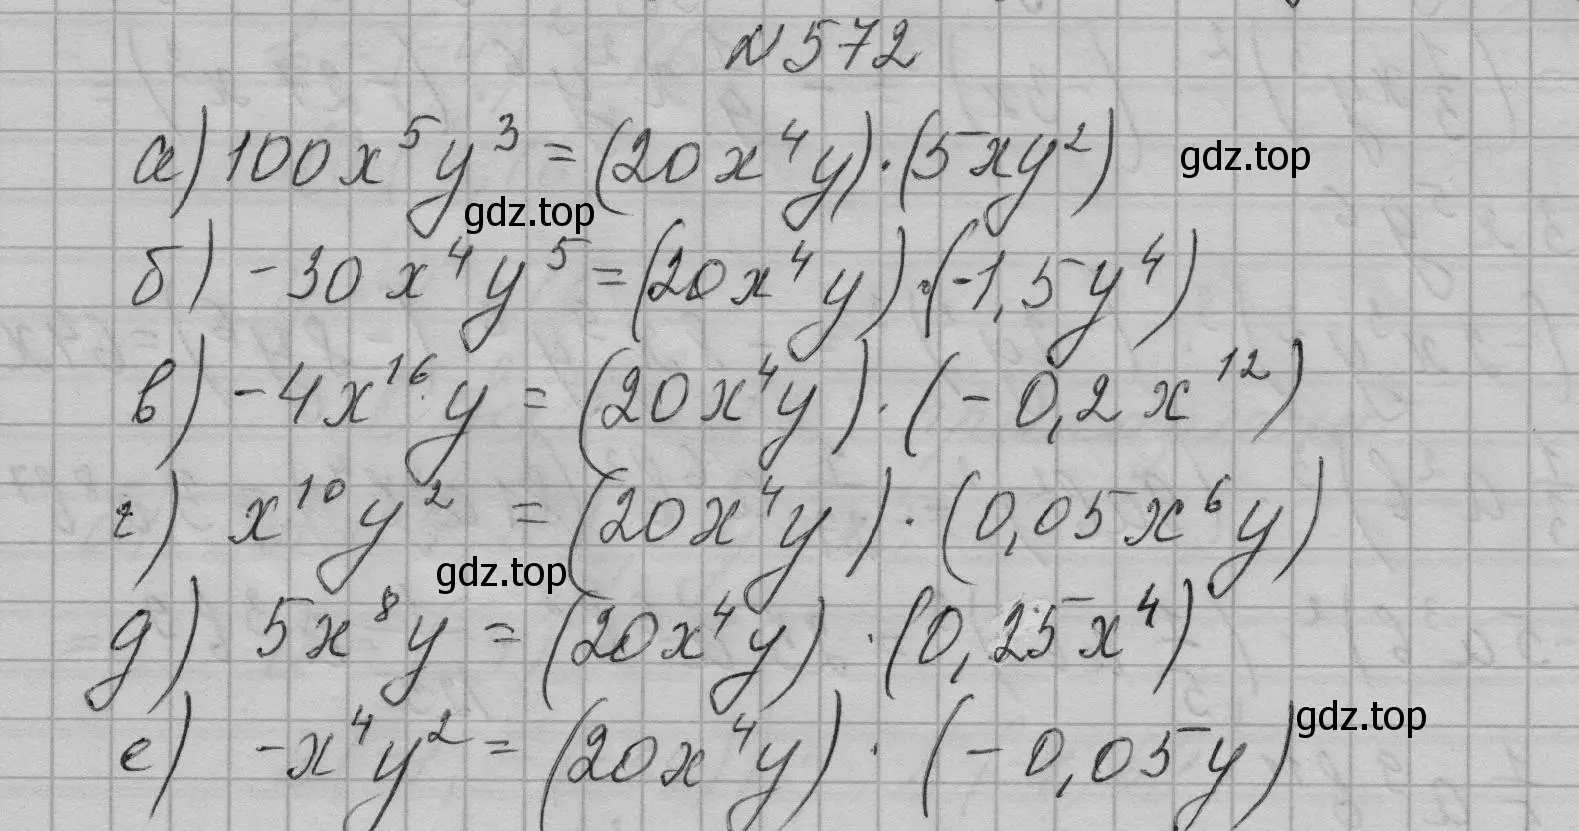 № 572
а) 100x⁵y³ = (20x⁴y)·(5xy²)
gdz.top
gdz.top
б) -30x⁴y⁵ = (20x⁴y)·(-1,5y⁴)
в) -4x¹⁶y = (20x⁴y)·(-0,2x¹²)
г) x¹⁰y² = (20x⁴y)·(0,05x⁶y)
gdz.top
д) 5x⁸y = (20x⁴y)·(0,25x⁴)
е) -x⁴y² = (20x⁴y)·(-0,05y)
gdz.top